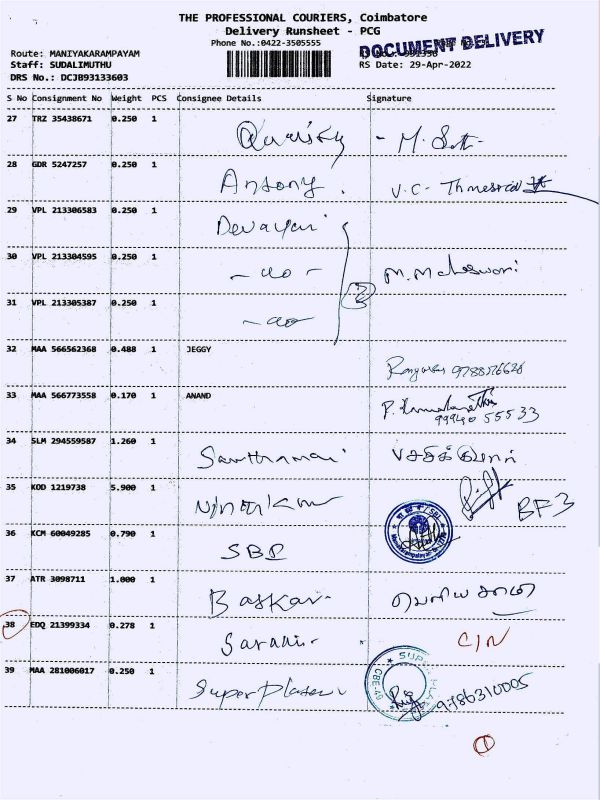 THE PROFESSIONAL COURIERS, Coimbatore
Delivery Runsheet - PCG
Phone No.:0422-3505555
DOCUMENT DELIVERY
Route: MANIYAKARAMPAYAM
Staff: SUDALIMUTHU RS Date: 29-Apr-2022
DRS No.: DCJB93133603
S No Consignment No Weight PCS Consignee Details Signature
27 TRZ 35438671 0.250 1
28 GDR 5247257 0.250 1 Antony V.C-
29 VPL 213306583 0.250 1 Devayani
30 VPL 213304595 0.250 1 - do - M. Maheswari
31 VPL 213305387 0.250 1 - do -
32 MAA 566562368 0.488 1 JEGGY
33 MAA 566773558 0.170 1 ANAND 99940 55533
34 SLM 294559587 1.260 1
35 KOD 1219738 5.900 1 BF3
36 KCM 60049285 0.790 1 SBI
37 ATR 3098711 1.000 1 Baskar
38 EDQ 21399334 0.278 1 C/N
39 MAA 281006017 0.250 1 9786310005
1